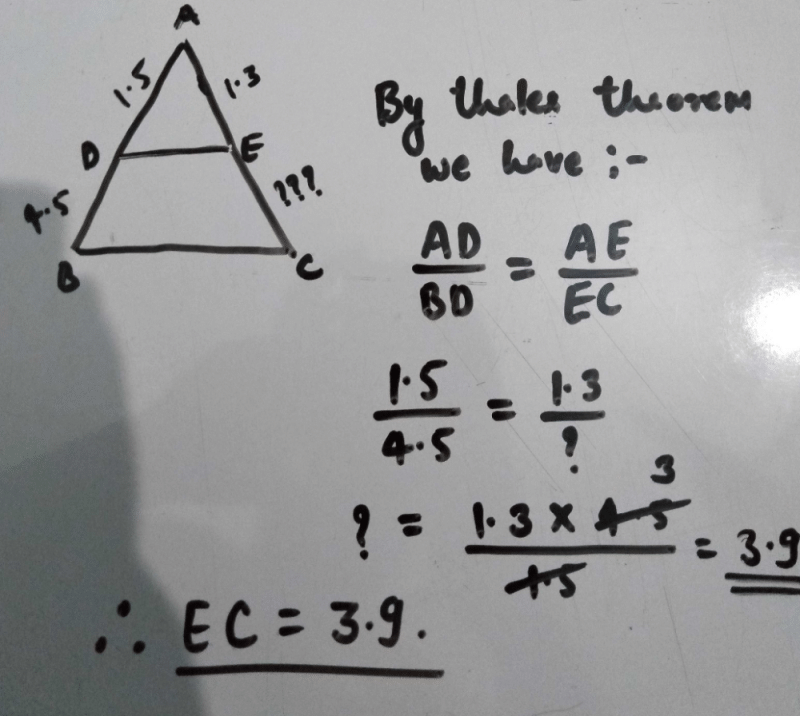 A
1.5
1.3
D
E
4.5
???
B
C
By thales theorem
we have :-
AD/BD = AE/EC
1.5/4.5 = 1.3/?
3
? = 1.3 x 4.5/1.5 = 3.9
∴ EC = 3.9.